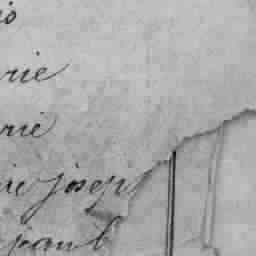 io
rie
rie
rie josep
paul